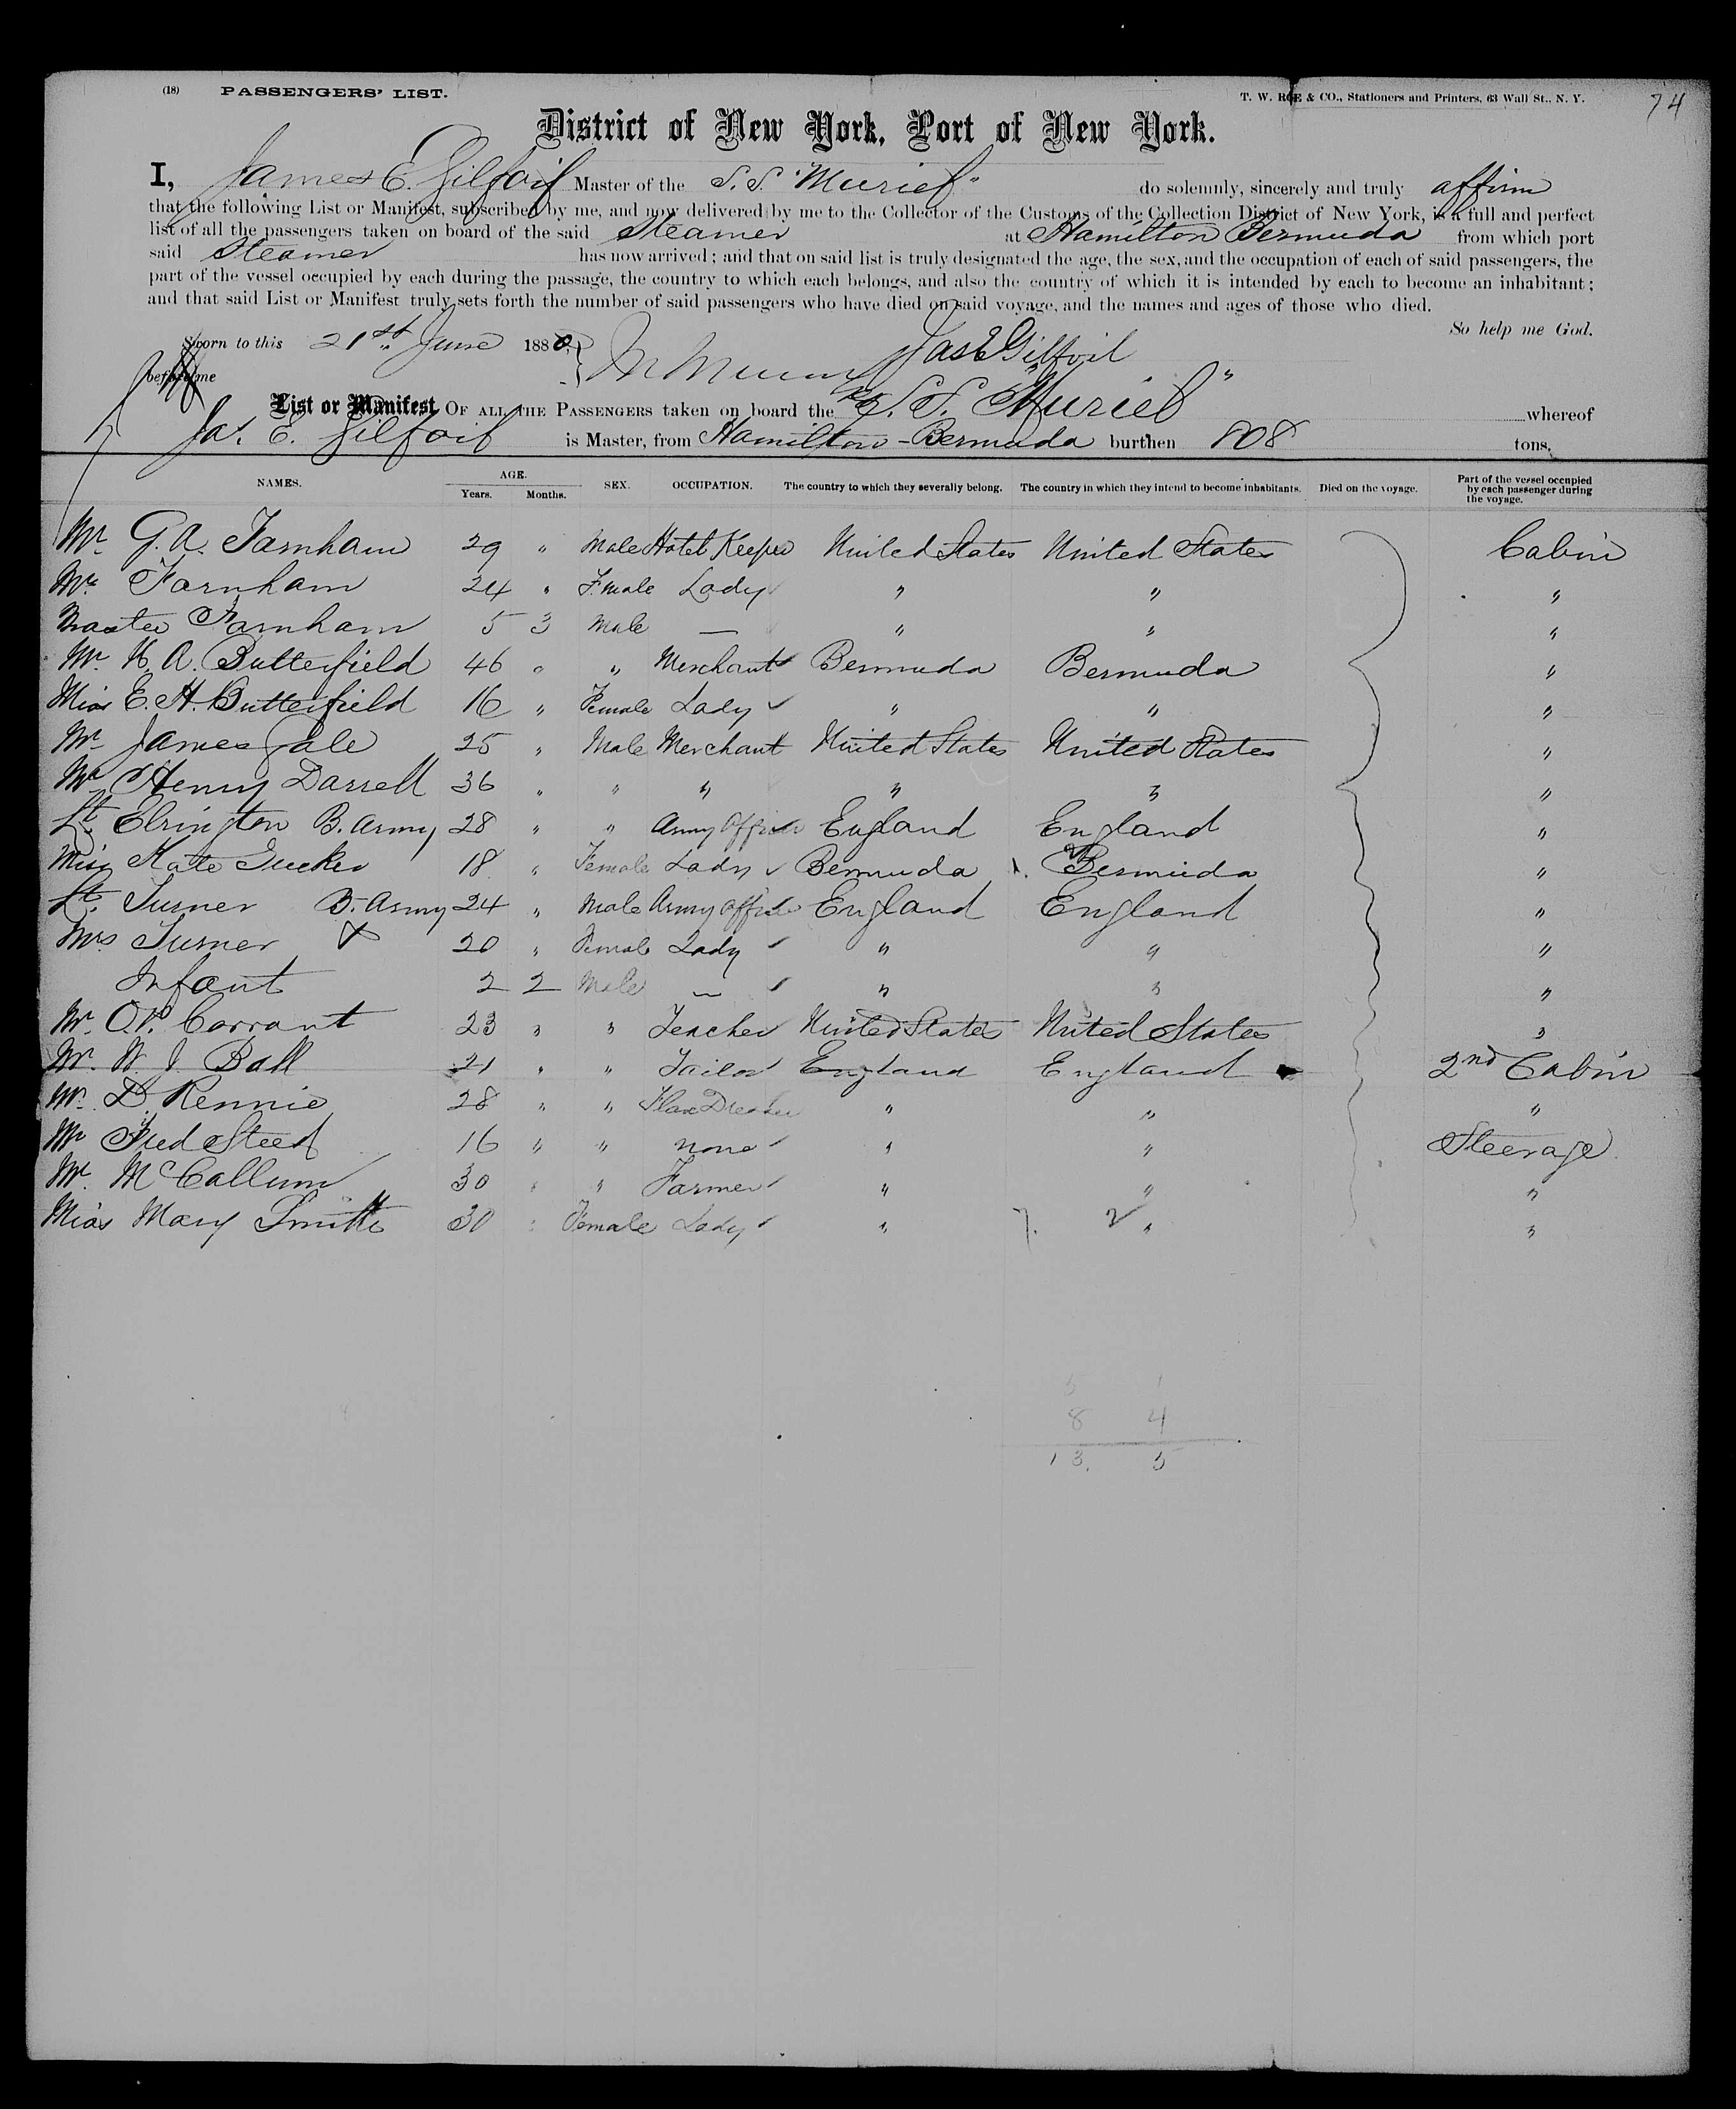 (18) PASSENGERS' LIST. T. W. ROE & CO., Stationers and Printers, 63 Wall St., N. Y. 74
District of New York, Port of New York.
I, James E. Gilfoil Master of the S.S. "Muriel" do solemnly, sincerely and truly affirm
that the following List or Manifest, subscribed by me, and now delivered by me to the Collector of the Customs of the Collection District of New York, is a full and perfect
list of all the passengers taken on board of the said Steamer at Hamilton Bermuda from which port
said Steamer has now arrived; and that on said list is truly designated the age, the sex, and the occupation of each of said passengers, the
part of the vessel occupied by each during the passage, the country to which each belongs, and also the country of which it is intended by each to become an inhabitant;
and that said List or Manifest truly sets forth the number of said passengers who have died on said voyage, and the names and ages of those who died.
So help me God.
Sworn to this 21st June 1880, Jas E Gilfoil
before me
List or Manifest OF ALL THE PASSENGERS taken on board the S.S. Muriel " whereof
Jas. E. Gilfoil is Master, from Hamilton - Bermuda burthen 808 tons.
NAMES. AGE. Years. Months. SEX. OCCUPATION. The country to which they severally belong. The country in which they intend to become inhabitants. Died on the voyage. Part of the vessel occupied by each passenger during the voyage.
Mr G. A. Farnham 29 " Male Hotel Keeper United States United States Cabin
Mrs Farnham 24 " Female Lady " " "
Master Farnham 5 3 Male — " " "
Mr. N. A. Butterfield 46 " " Merchant Bermuda Bermuda "
Miss E. H. Butterfield 16 " Female Lady " " "
Mr James Gale 25 " Male Merchant United States United States "
Mr Henry Darrell 36 " " " " " "
Lt. Elrington B. Army 28 " " Army Officer England England "
Miss Kate Tucker 18 " Female Lady Bermuda Bermuda "
Lt. Turner B. Army 24 " Male Army Officer England England "
Mrs Turner 20 " Female Lady " " "
Infant 2 2 Male — " " "
Mr. Corrant 23 " " Teacher United States United States "
Mr. W. J. Ball 21 " " Tailor England England 2nd Cabin
Mr. D. Rennie 28 " " Flax Dresser " " "
Mr Fred Steed 16 " " none " " Steerage
Mr. McCallum 30 " " Farmer " " "
Miss Mary Smith 30 " Female Lady " " "
5 1
8 4
13. 5